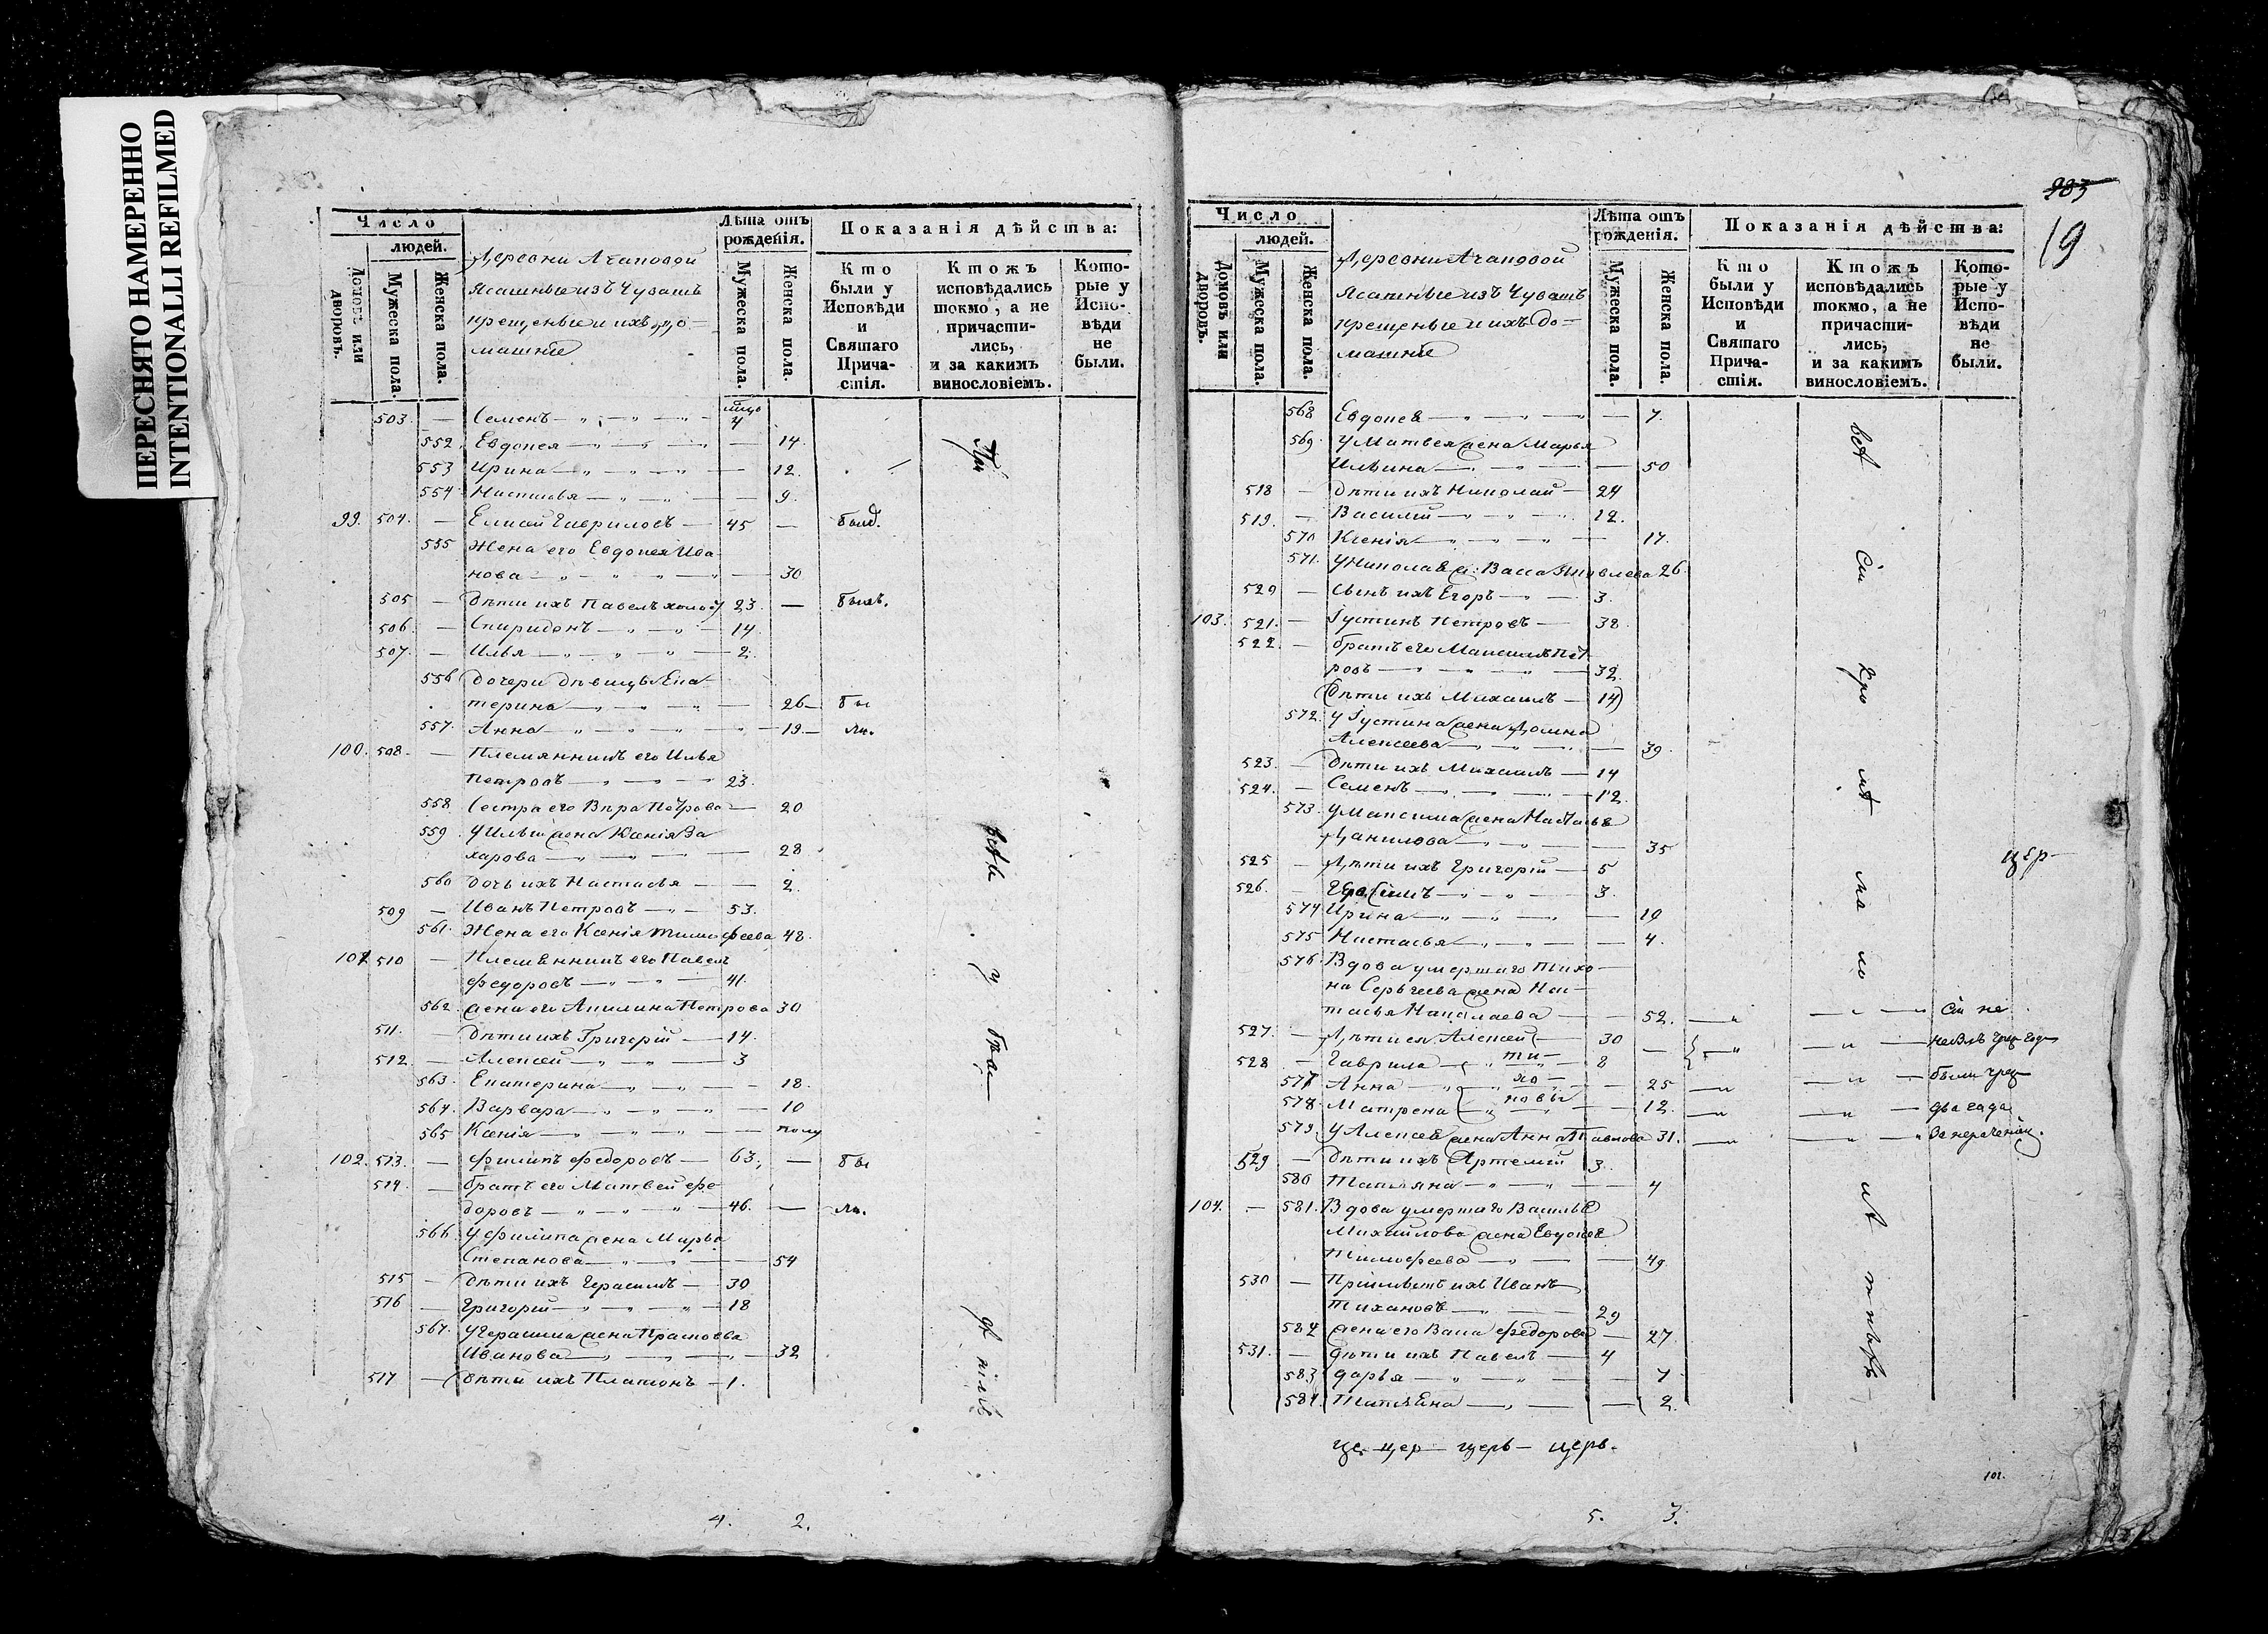 ПЕРЕСНЯТО НАМЕРЕННО
INTENTIONALLI REFILMED
Число
людей.
Домовъ или дворовъ.
Мужеска пола.
Женска пола.
Деревни Ачаповой
Ясашные изъ Чувашъ
крещеные и ихъ до-
машніе
Лѣта отъ рожденія.
Мужеска пола.
Женска пола.
Показанія дѣйства:
Кто были у Исповѣди и Святаго Причастія.
Ктожъ исповѣдались токмо, а не причастились, и за какимъ винословіемъ.
Которые у Исповѣди не были.
503. — Семенъ — 4
552. Евдокея — 14.
553 Ирина — 12.
554 Настасья — 9.
99. 504. — Елисей Гавриловъ — 45 —
555 Жена его Евдокея Ива-
нова — 30
505 — Дѣти ихъ Павелъ холос 23. — былъ.
506. — Спиридонъ — 14.
507. — Илья — 2.
556 Дочери дѣвицы Ека-
терина — 26 — бы
557. Анна — 19 — ли.
100. 508. — Племянникъ его Илья
Петровъ — 23.
558 Сестра его Вѣра Петрова — 20
559 У Ильи жена Ксенія За
харова — 28
560 Дочь ихъ Настасья — 2.
509 — Иванъ Петровъ — 53.
561. Жена его Ксенія Тимофеева 48.
101. 510 — Племянникъ его Павелъ
Федоровъ — 41.
562. жена его Акилина Петрова 30
511. — Дѣти ихъ Григорій — 14.
512. — Алексей — 3
563. Екатерина — 18.
564. Варвара — 10
565 Ксенія — полу
102. 513. — Филипъ Федоровъ — 63, — бы
514. — братъ его Матвей Фе-
доровъ — 46. — ли.
566 У Филипа жена Марья
Степанова — 54
515 — Дѣти ихъ Герасимъ — 30
516 — Григорій — 18
567. У Герасима жена Прасковья
Иванова — 32
517 — Дѣти ихъ Платонъ — 1.
При
всѣ и
у
бѣл
4. 2.
983
19
Число
людей.
Домовъ или дворовъ.
Мужеска пола.
Женска пола.
Деревни Ачаповой
Ясашные изъ Чувашъ
крещеные и ихъ до-
машніе
Лѣта отъ рожденія.
Мужеска пола.
Женска пола.
Показанія дѣйства:
Кто были у Исповѣди и Святаго Причастія.
Ктожъ исповѣдались токмо, а не причастились, и за какимъ винословіемъ.
Которые у Исповѣди не были.
568 Евдокея — 7.
569. У Матвея жена Марья
Ильина — 50
518 — Дѣти ихъ Николай — 24
519. — Василій — 12.
570 Ксенія — 17.
571. У Николая ж: Васса Яковлева 26.
520 — Сынъ ихъ Егоръ — 3.
103. 521. — Густинъ Петровъ — 38.
522. — братъ его Максимъ Пет-
ровъ — 32.
(Дѣти ихъ Михаилъ — 14)
572. У Густина жена Домна
Алексеева — 39.
523. — Дѣти ихъ Михаилъ — 14
524. — Семенъ — 12.
573. У Максима жена Настасья
Данилова — 35
525 — Дѣти ихъ Григорій — 5
526. — Герасимъ — 3.
574 Ирина — 10
575 Настасья — 4.
576. Вдова умершаго Тихо-
на Сергеева жена Нас-
тасья Николаева — 52.
527. — Дѣти ея Алексей — 30
528 — Гаврила — 8
ти-
хо-
новы
577 Анна — 25
578. Матрена — 12.
579. У Алексея жена Анна Павлова 31.
529 — Дѣти ихъ Артемій 3.
580 Татьяна — 4
104. — 581. Вдова умершаго Василья
Михайлова жена Евдокея
Тимофеева — 49.
530 — Пріимышъ ихъ Иванъ
Тихановъ — 29
582 жена его Васса Федорова — 27.
531. — Дѣти ихъ Павелъ — 4
583 Дарья — 7
584. Татьяна — 2.
всѣ
Сіи
кро
мѣ
ма
ло
лѣ
тнѣхъ
Сіи не
были чрез
два года
За нераченіемъ.
цер-
це. цер- церь- церь.
101.
5. 3.